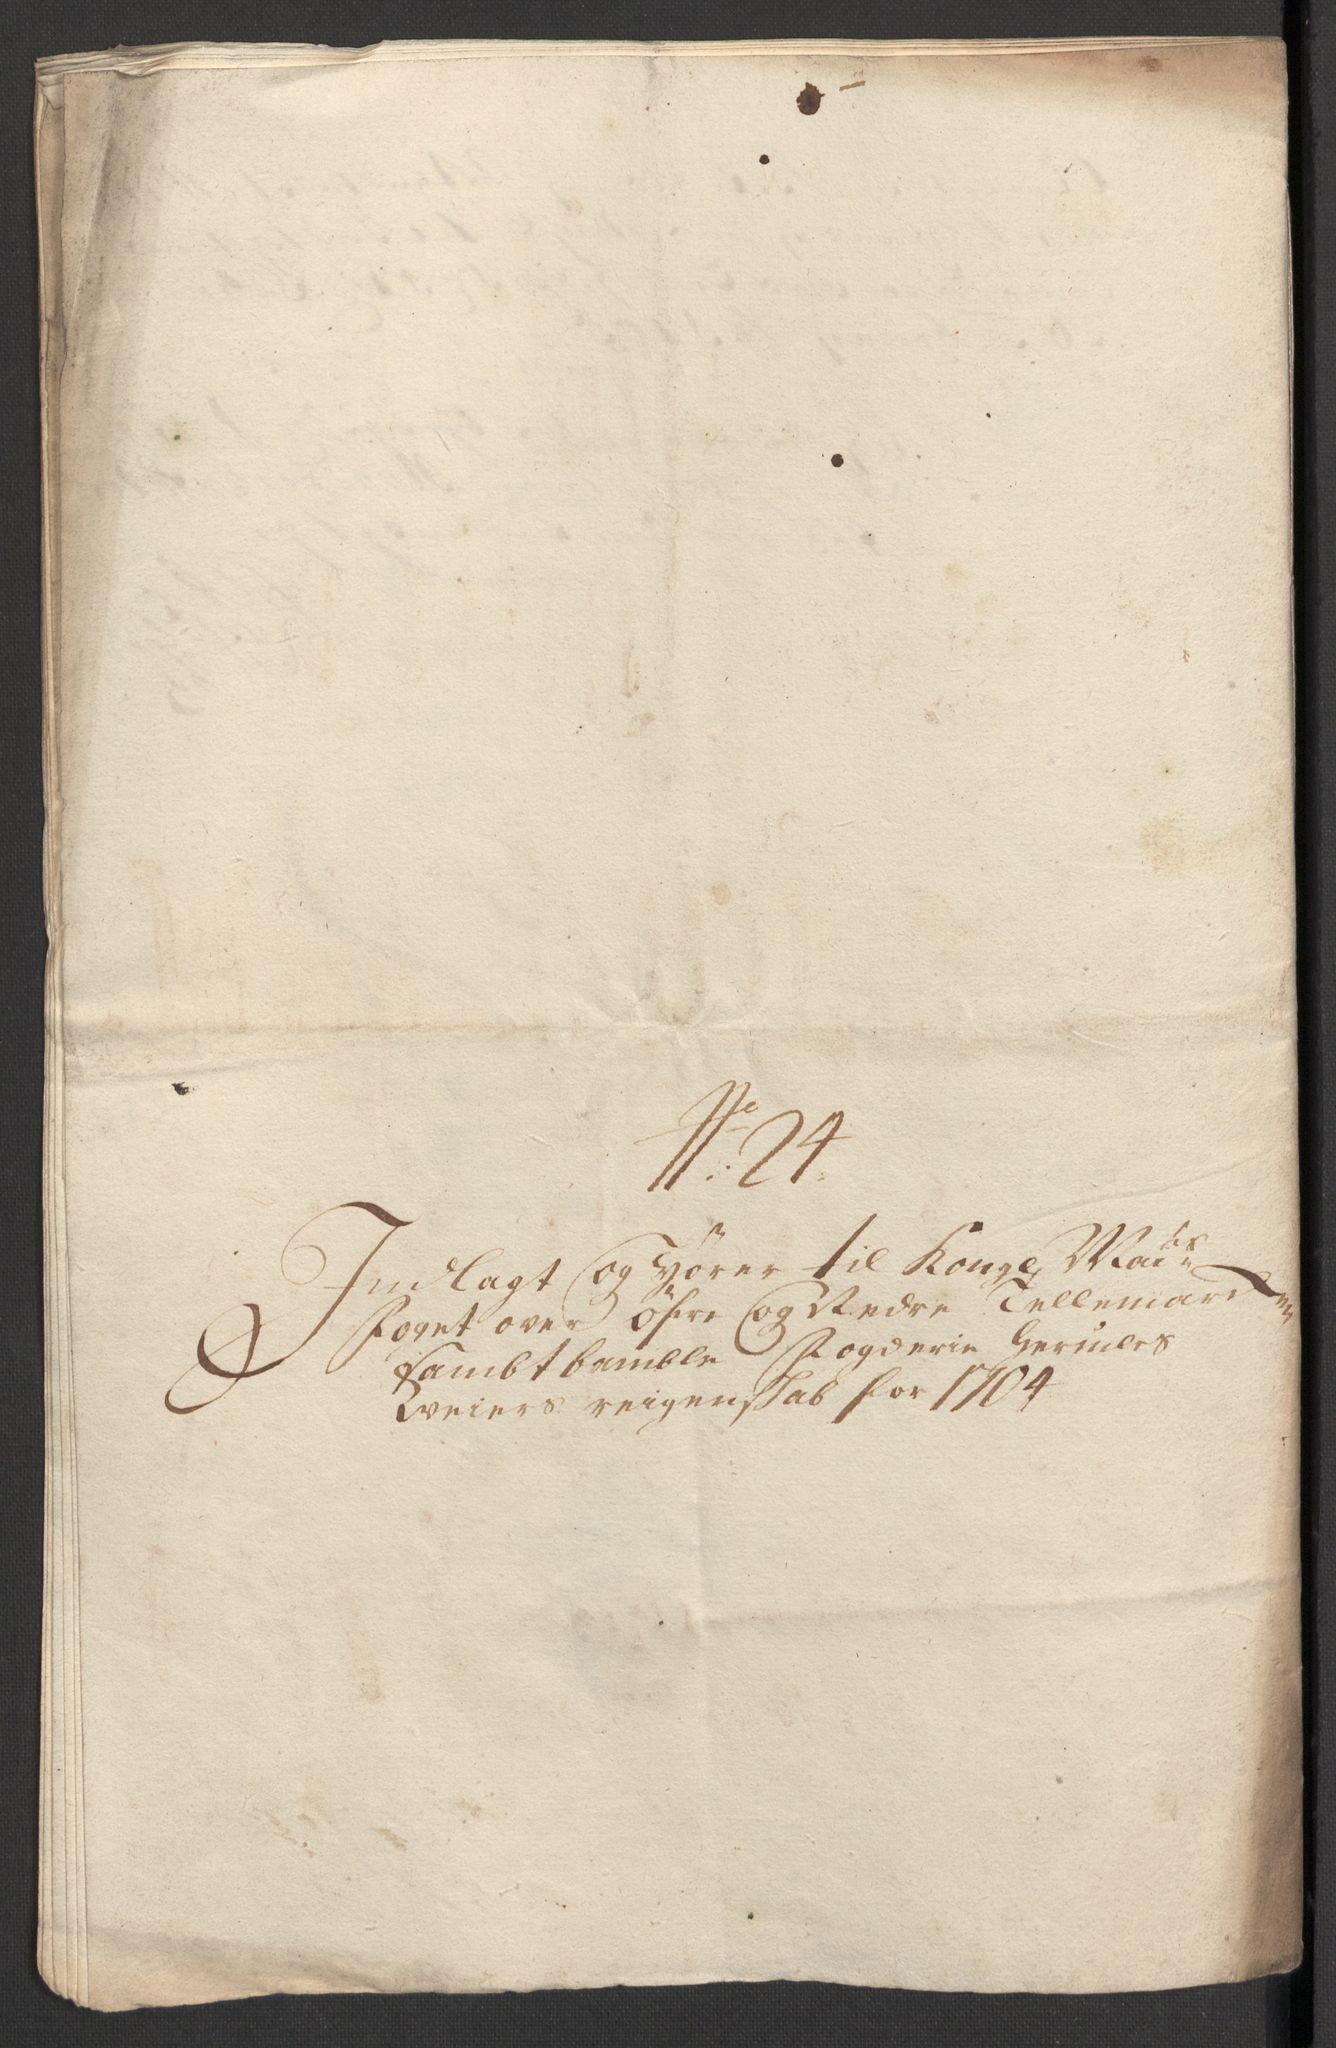 No: 24.
Indlagt og hörer til Kongl. Mai:ts
Foget over öfre og Nedre Tellemarcken
sambt bamble Fogderie
Weiers reigenskab for 1704